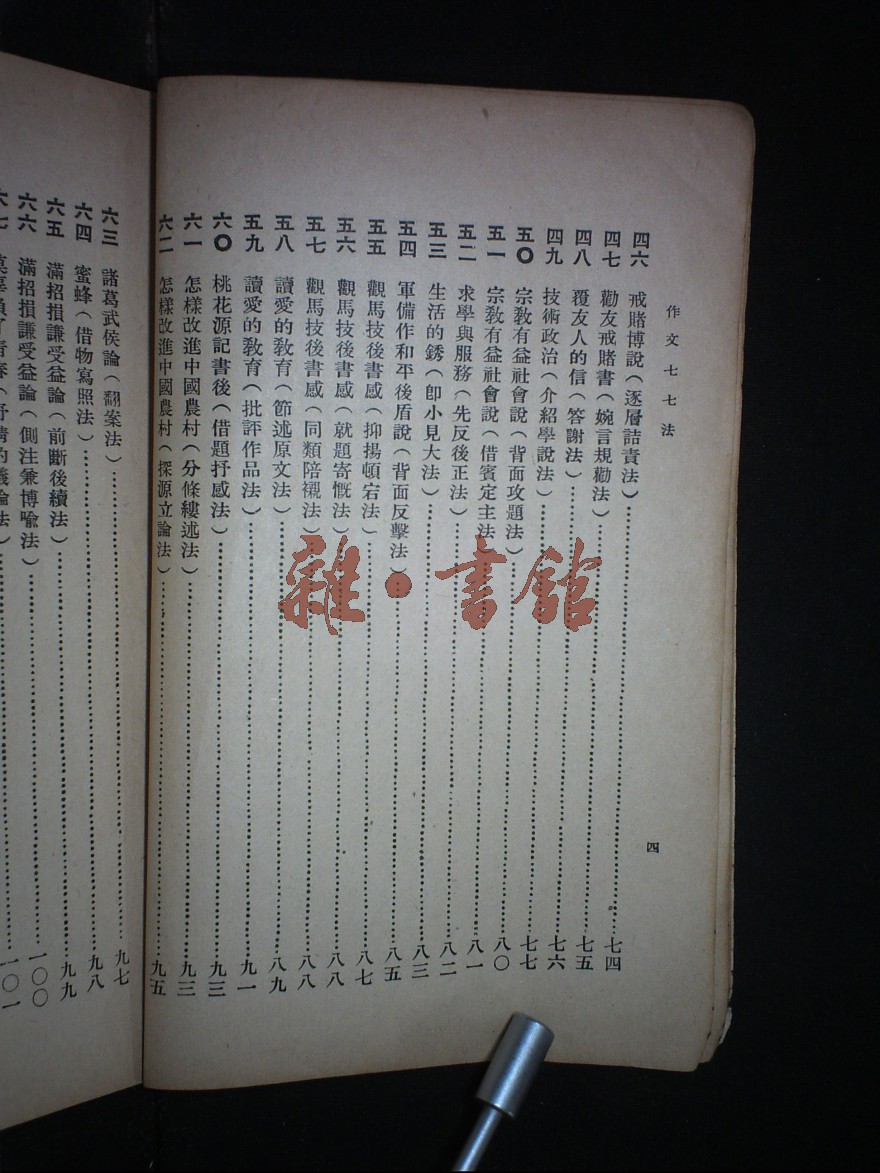 作文七七法
四
四六 戒賭博說（逐層詰責法）……七四
四七 勸友戒賭書（婉言規勸法）……七五
四八 覆友人的信（答謝法）……七六
四九 技術政治（介紹學說法）……七七
五〇 宗教有益社會說（背面攻題法）……八〇
五一 宗教有益社會說（借賓定主法）……八一
五二 求學與服務（先反後正法）……八二
五三 生活的銹（卽小見大法）……八三
五四 軍備作和平後盾說（背面反擊法）……八五
五五 觀馬技後書感（抑揚頓宕法）……八七
五六 觀馬技後書感（就題寄慨法）……八八
五七 觀馬技後書感（同類陪襯法）……八八
五八 讀愛的教育（節述原文法）……八九
五九 讀愛的教育（批評作品法）……九一
六〇 桃花源記書後（借題抒感法）……九三
六一 怎樣改進中國農村（分條縷述法）……九三
六二 怎樣改進中國農村（探源立論法）……九五
六三 諸葛武侯論（翻案法）……九七
六四 蜜蜂（借物寫照法）……九八
六五 滿招損謙受益論（前斷後續法）……九九
六六 滿招損謙受益論（側注兼博喻法）……一〇〇
六七 莫辜負了青春（抒情的議論法）……一〇一
雜·書館